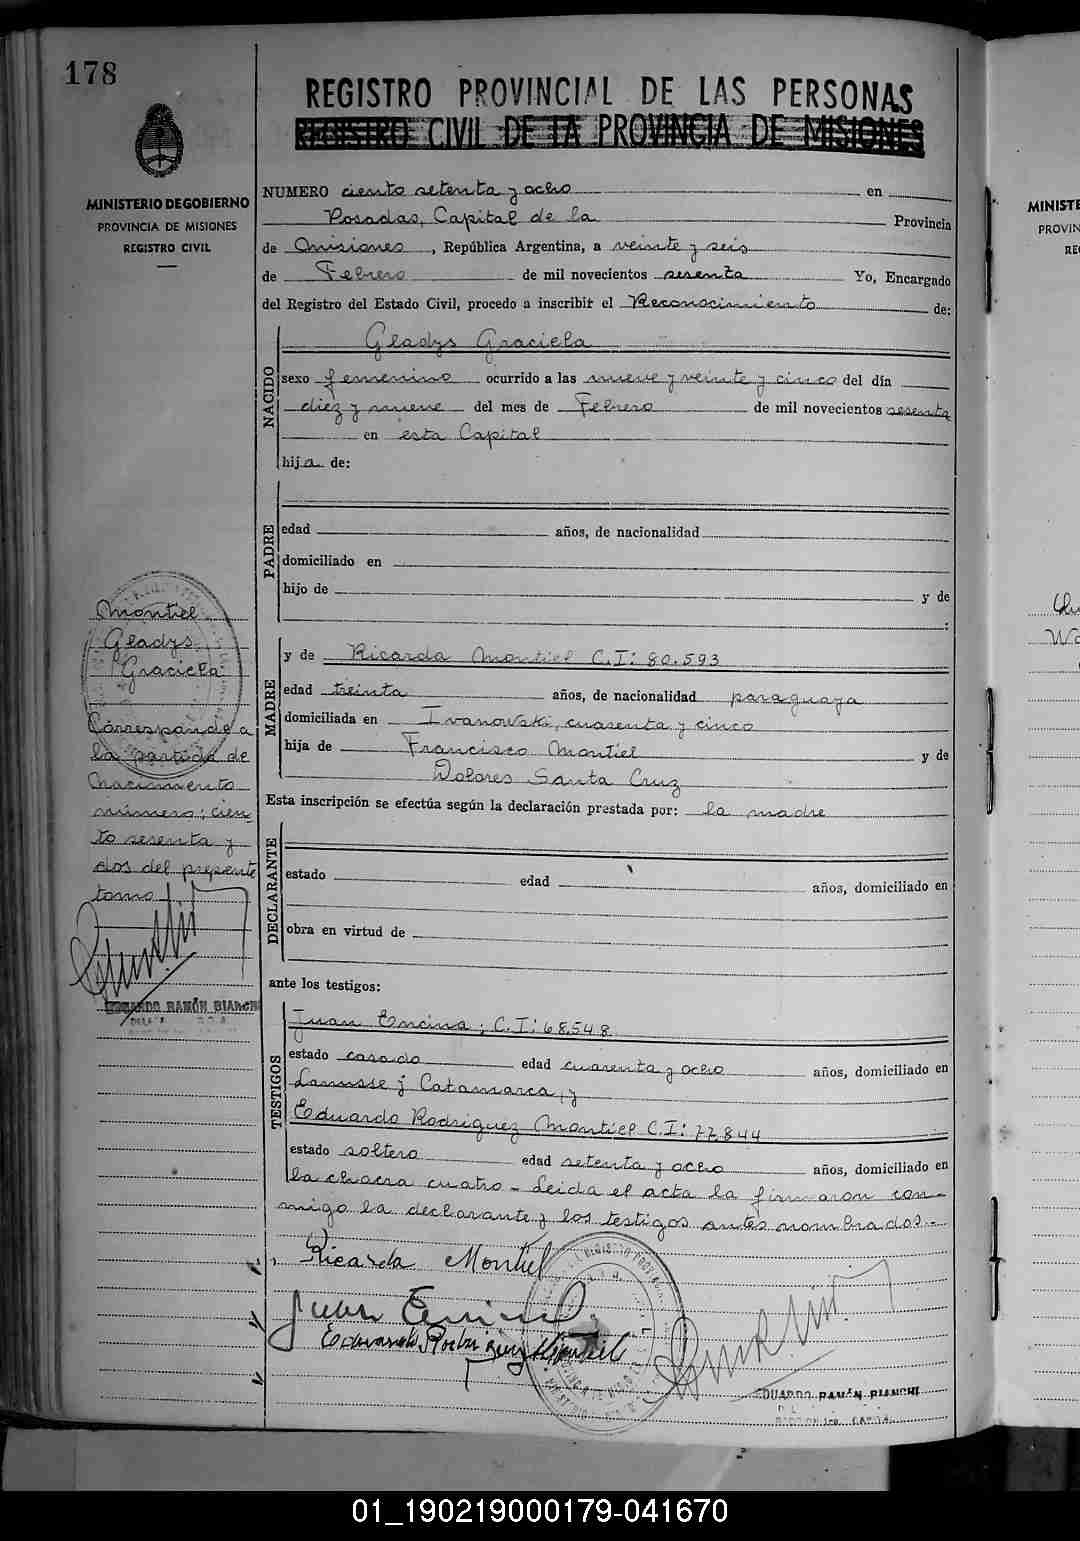 178
REGISTRO PROVINCIAL DE LAS PERSONAS
REGISTRO CIVIL DE LA PROVINCIA DE MISIONES
MINISTERIO DE GOBIERNO
PROVINCIA DE MISIONES
REGISTRO CIVIL
NUMERO ciento setenta y ocho en
Posadas, Capital de la Provincia
de Misiones, República Argentina, a veinte y seis
de Febrero de mil novecientos sesenta Yo, Encargado
del Registro del Estado Civil, procedo a inscribir el Reconocimiento de:
NACIDO
Gladys Graciela
sexo femenino ocurrido a las nueve y veinte y cinco del día
diez y nueve del mes de Febrero de mil novecientos sesenta
en esta Capital
hija de:
PADRE
edad años, de nacionalidad
domiciliado en
hijo de y de
:
MADRE
y de Ricarda Montiel C.I: 80.593
edad treinta años, de nacionalidad paraguaya
domiciliada en Ivanovski, cuarenta y cinco
hija de Francisco Montiel y de
Dolores Santa Cruz
Esta inscripción se efectúa según la declaración prestada por: la madre
DECLARANTE
estado edad años, domiciliado en
obra en virtud de
ante los testigos:
TESTIGOS
Juan Encina; C.I: 68.548
estado casado edad cuarenta y ocho años, domiciliado en
Lanusse y Catamarca, y
Eduardo Rodriguez Montiel C.I: 77.844
estado soltero edad setenta y ocho años, domiciliado en
la chacra cuatro - Leida el acta la firmaron con-
migo la declarante y los testigos antes nombrados.-
Ricarda Montiel
Juan Encina
Eduardo Rodriguez Montiel
EDUARDO RAMÓN BIANCHI
Montiel
Gladys
Graciela
Corresponde a
la partida de
Nacimiento
número: cien-
to sesenta y
dos del presente
tomo
EDUARDO RAMÓN BIANCHI
MINISTE
PROVIN
RE
01_190219000179-041670